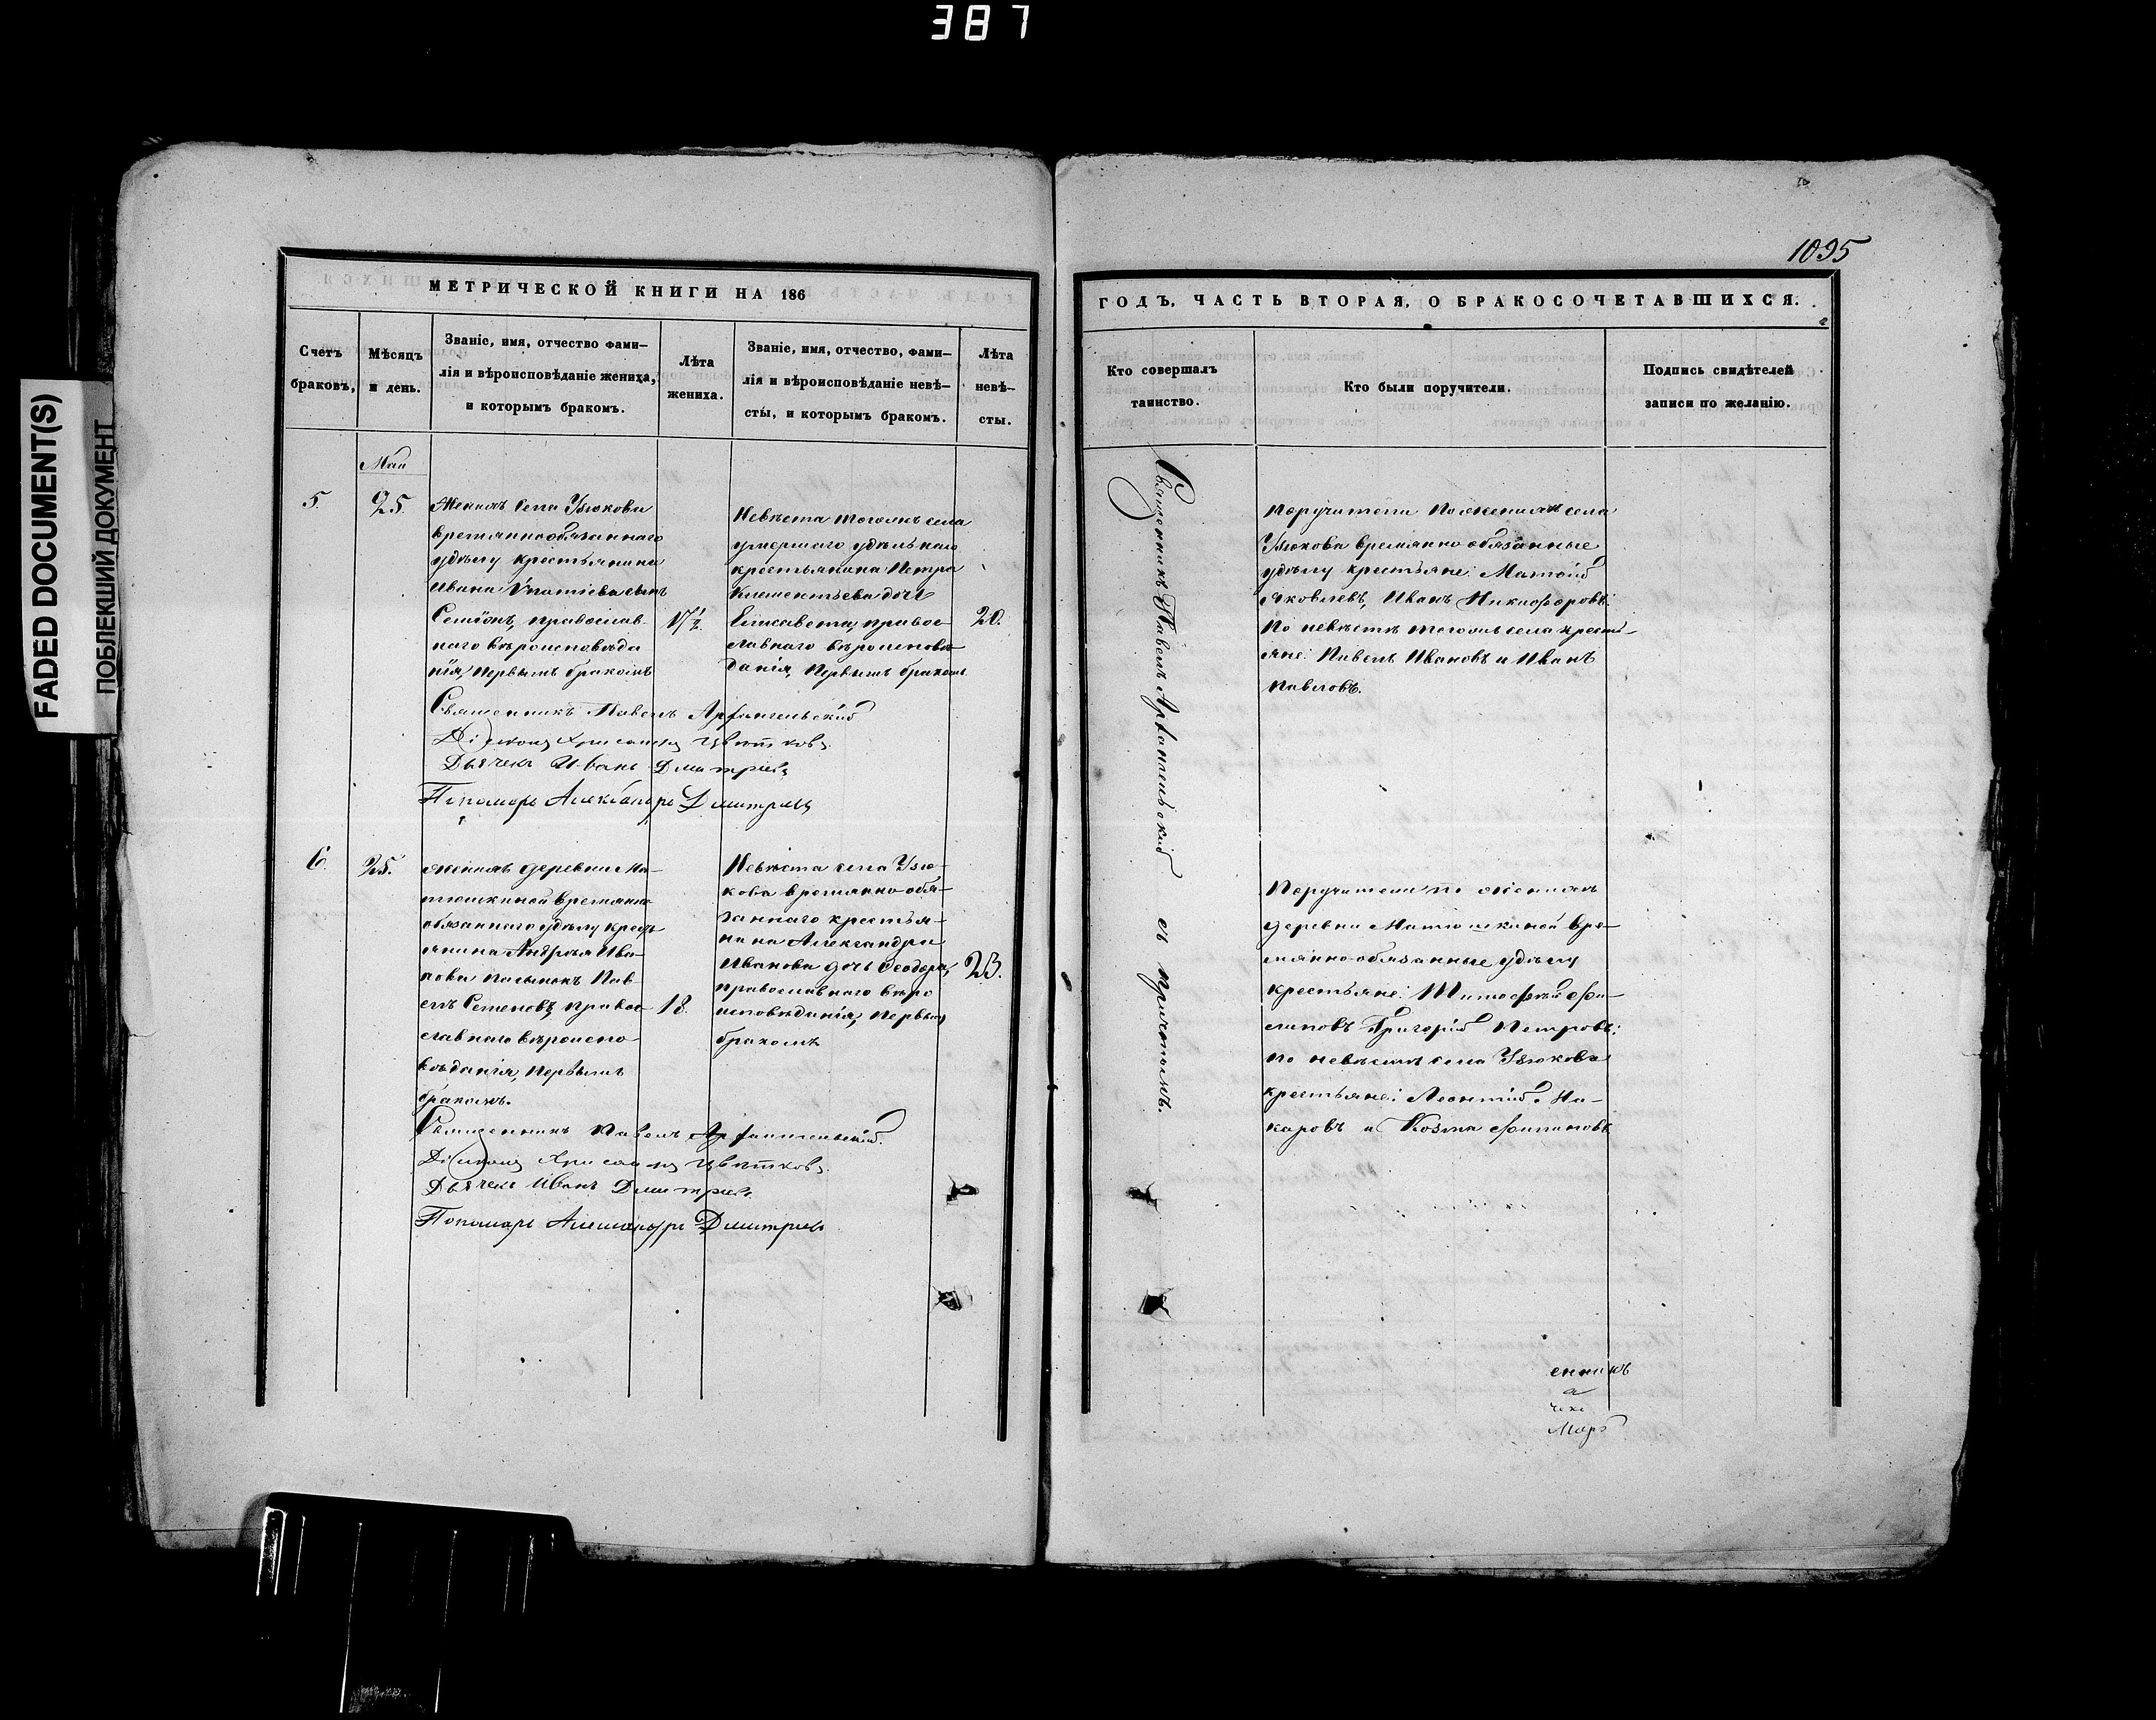 387
FADED DOCUMENT(S)
ПОБЛЕКШИЙ ДОКУМЕНТ
1095
МЕТРИЧЕСКОЙ КНИГИ НА 186
Счетъ
браковъ,
Мѣсяцъ
и день.
Званіе, имя, отчество фами-
лія и вѣроисповѣданіе жениха,
и которымъ бракомъ.
Лѣта
жениха.
Званіе, имя, отчество, фами-
лія и вѣроисповѣданіе невѣ-
сты, и которымъ бракомъ.
Лѣта
невѣ-
сты.
Май
5.
25.
Женихъ села Узюкова
временнообязаннаго
удѣлу крестьянина
Ивана Игнатіева сынъ
Семіонъ, православ-
наго вѣроисповѣда
нія, первымъ бракомъ
17½.
Невѣста тогожъ села
умершаго удѣльнаго
крестьянина Петра
Климентьева дочь
Елисавета, правос-
лавнаго вѣроисповѣ
данія, первымъ бракомъ
20.
Священникъ Павелъ Архангельскій
Діаконъ Хрисанфъ Цвѣтковъ
Дьячекъ Иванъ Дмитріевъ
Пономарь Александръ Дмитріевъ
6.
25.
Женихъ деревни Ма-
тюшкиной времянно
обязаннаго удѣлу крест
янина Андрея Ива-
нова пасынокъ Пав-
елъ Семеновъ, правос-
славнаго вѣроиспо-
вѣданія, первымъ
бракомъ.
18.
Невѣста села Узю-
кова времянно-обя-
заннаго крестья-
нина Александра
Иванова дочь Феодора,
православнаго вѣро
исповѣданія, первымъ
бракомъ
23.
Священникъ Павелъ Архангельскій.
Діаконъ Хрисанфъ Цвѣтковъ
Дьячекъ Иванъ Дмитріевъ
Пономарь Александръ Дмитріевъ
ГОДЪ, ЧАСТЬ ВТОРАЯ, О БРАКОСОЧЕТАВШИХСЯ.
Кто совершалъ
таинство.
Кто были поручители.
Подпись свидѣтелей
записи по желанію.
Священникъ Павелъ Архангельскій съ причтомъ.
Поручители по женихѣ села
Узюкова времянно обязанные
удѣлу крестьяне: Матвій
Яковлевъ, Иванъ Никифоровъ:
по невѣстѣ тогожъ села кресть-
яне: Павелъ Ивановъ и Иванъ
Павловъ.
Поручители по женихѣ
деревни Матюшкиной вре-
мянно-обязанные удѣлу
крестьяне: Тимофѣй Фи-
липовъ Григорій Петровъ:
по невѣстѣ села Узюкова
крестьяне: Леонтій Ма-
каровъ и Козма Филиповъ
енникъ
а
чекъ
Марь